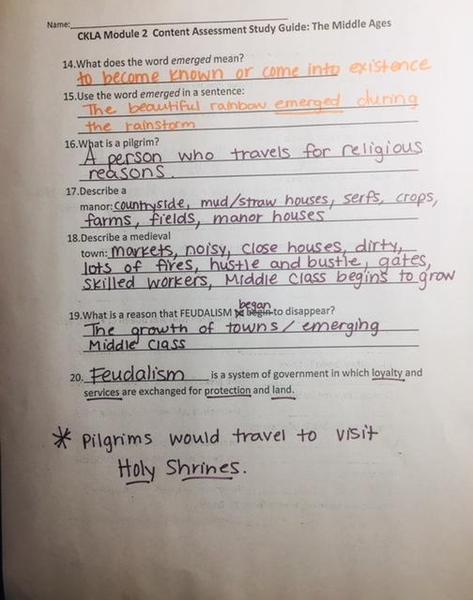 Name:
CKLA Module 2 Content Assessment Study Guide: The Middle Ages
14.What does the word emerged mean?
to become known or come into existence
15.Use the word emerged in a sentence:
The beautiful rainbow emerged during
the rainstorm
16.What is a pilgrim?
A person who travels for religious
reasons.
17.Describe a
manor: countryside, mud/straw houses, serfs, crops,
farms, fields, manor houses
18.Describe a medieval
town: markets, noisy, close houses, dirty,
lots of fires, hustle and bustle, gates,
skilled workers, Middle Class begins to grow
began
19.What is a reason that FEUDALISM begin to disappear?
The growth of towns/emerging
Middle Class
20. Feudalism is a system of government in which loyalty and
services are exchanged for protection and land.
* Pilgrims would travel to visit
Holy Shrines.